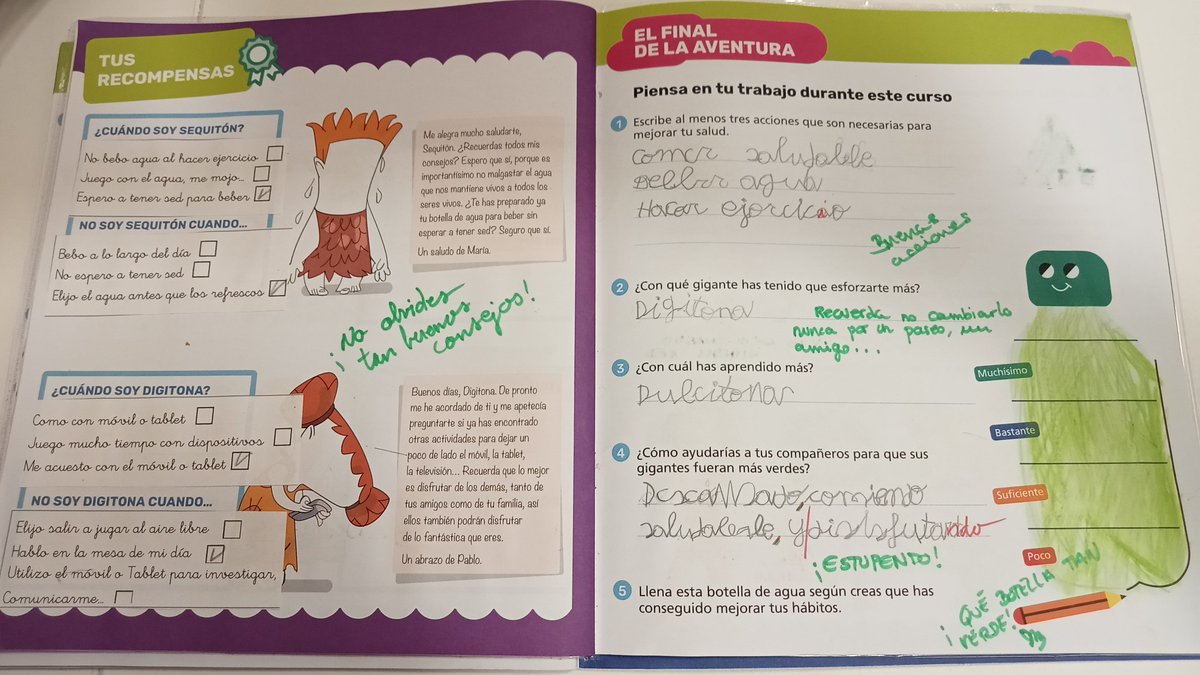 TUS
RECOMPENSAS
¿CUÁNDO SOY SEQUITÓN?
No bebo agua al hacer ejercicio
Juego con el agua, me mojo...
Espero a tener sed para beber
NO SOY SEQUITÓN CUANDO...
Bebo a lo largo del día
No espero a tener sed
Elijo el agua antes que los refrescos
Me alegra mucho saludarte,
Sequitón. ¿Recuerdas todos mis
consejos? Espero que sí, porque es
importantísimo no malgastar el agua
que nos mantiene vivos a todos los
seres vivos. ¿Te has preparado ya
tu botella de agua para beber sin
esperar a tener sed? Seguro que sí.
Un saludo de María.
¡No olvides
tan buenos
consejos!
¿CUÁNDO SOY DIGITONA?
Como con móvil o tablet
Juego mucho tiempo con dispositivos
Me acuesto con el móvil o tablet
NO SOY DIGITONA CUANDO...
Elijo salir a jugar al aire libre
Hablo en la mesa de mi día
Utilizo el móvil o Tablet para investigar,
Comunicarme...
Buenos días, Digitona. De pronto
me he acordado de ti y me apetecía
preguntarte si ya has encontrado
otras actividades para dejar un
poco de lado el móvil, la tablet,
la televisión... Recuerda que lo mejor
es disfrutar de los demás, tanto de
tus amigos como de tu familia, así
ellos también podrán disfrutar
de lo fantástica que eres.
Un abrazo de Pablo.
EL FINAL
DE LA AVENTURA
Piensa en tu trabajo durante este curso
1 Escribe al menos tres acciones que son necesarias para
mejorar tu salud.
comer saludable
agua
Hacer
Buenas
acciones
2 ¿Con qué gigante has tenido que esforzarte más?
Digitona
Recuerda no cambiarlo
nunca por un paseo, un
amigo...
3 ¿Con cuál has aprendido más?
Dulcitona
4 ¿Cómo ayudarías a tus compañeros para que sus
gigantes fueran más verdes?
comiendo
¡ESTUPENDO!
5 Llena esta botella de agua según creas que has
conseguido mejorar tus hábitos.
Muchísimo
Bastante
Suficiente
Poco
¡QUÉ BOTELLA TAN
VERDE!